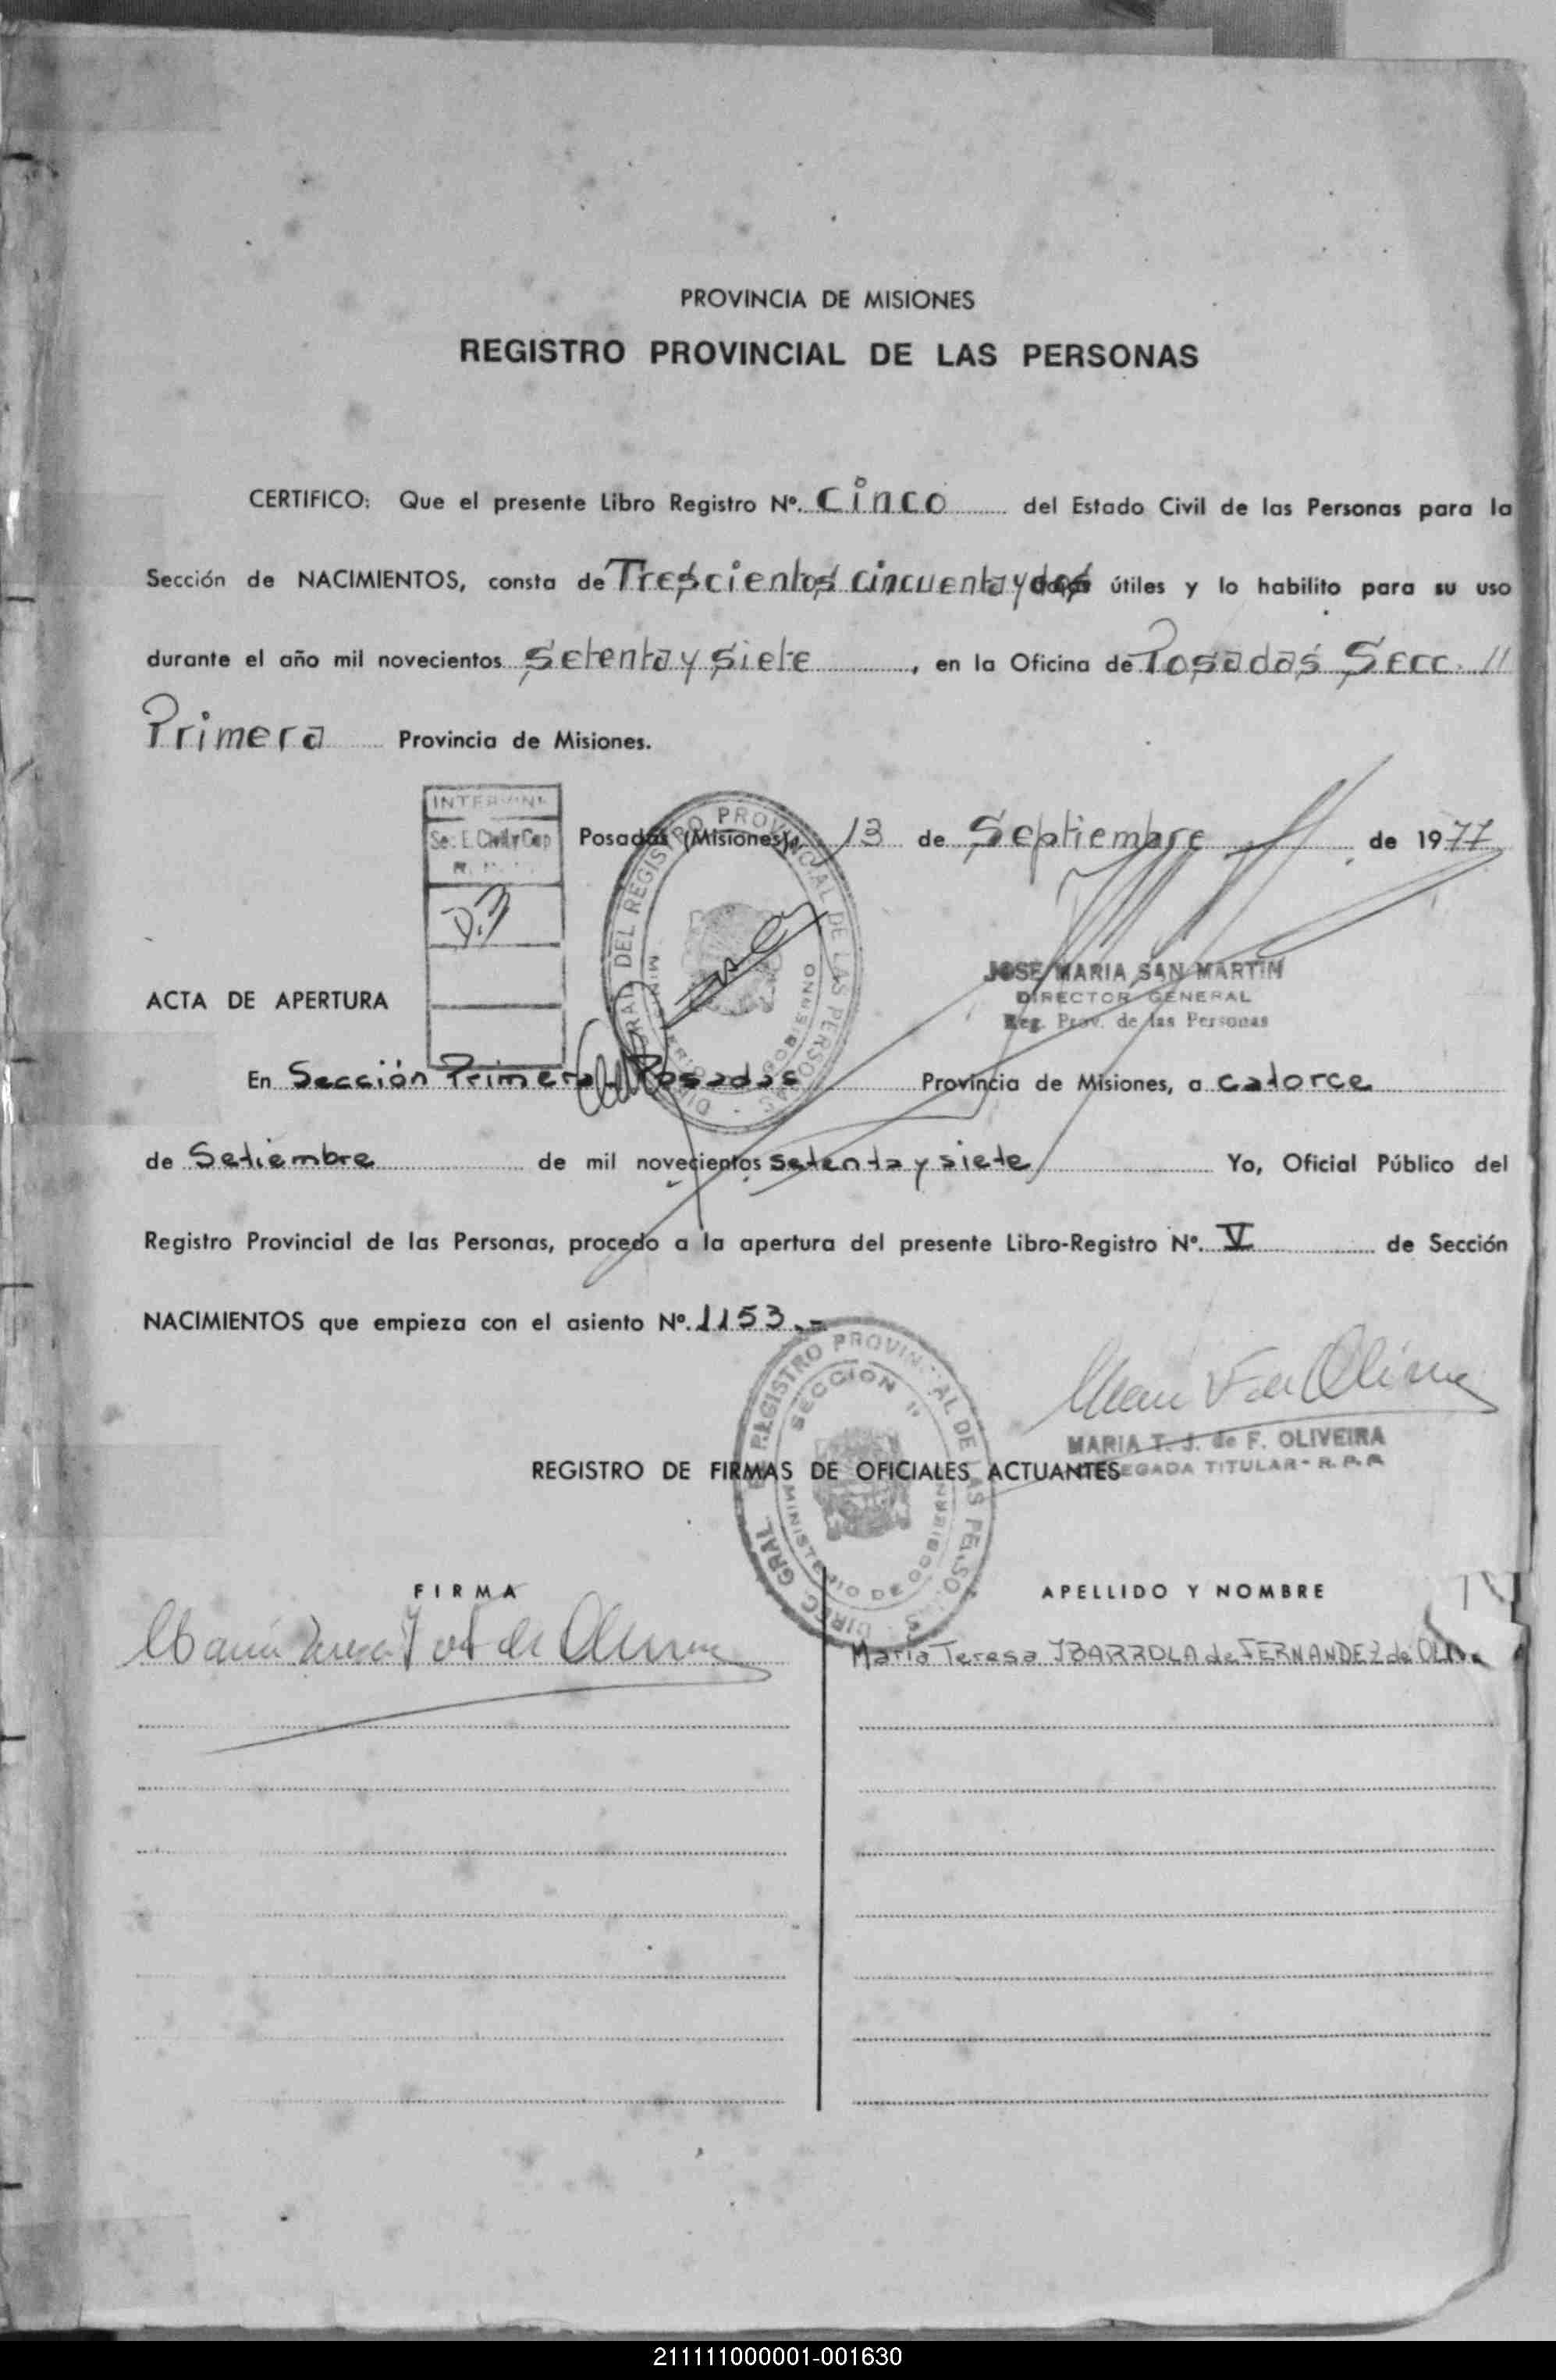 PROVINCIA DE MISIONES
REGISTRO PROVINCIAL DE LAS PERSONAS
CERTIFICO: Que el presente Libro Registro Nº. Cinco del Estado Civil de las Personas para la
Sección de NACIMIENTOS, consta de Trescientos cincuenta y dos útiles y lo habilito para su uso
durante el año mil novecientos Setenta y Siete, en la Oficina de Posadas Secc. //
Primera Provincia de Misiones.
INTERVINE
Sec. E. Civil y Cap
Posadas (Misiones), 13 de Septiembre de 1977
DIREC. GRAL. DEL REGISTRO PROVINCIAL DE LAS PERSONAS
MINISTERIO DE GOBIERNO
JOSE MARIA SAN MARTIN
DIRECTOR GENERAL
Reg. Prov. de las Personas
ACTA DE APERTURA
En Sección Primera Posadas Provincia de Misiones, a catorce
de Setiembre de mil novecientos setenta y siete Yo, Oficial Público del
Registro Provincial de las Personas, procedo a la apertura del presente Libro-Registro Nº. V de Sección
NACIMIENTOS que empieza con el asiento Nº. 1153.-
DIREC. GRAL. REGISTRO PROVINCIAL DE LAS PERSONAS
SECCION
MINISTERIO DE GOBIERNO
MARIA T. J. de F. OLIVEIRA
DELEGADA TITULAR - R.P.P.
REGISTRO DE FIRMAS DE OFICIALES ACTUANTES
FIRMA
APELLIDO Y NOMBRE
María Teresa IBARROLA de FERNANDEZ de
211111000001-001630